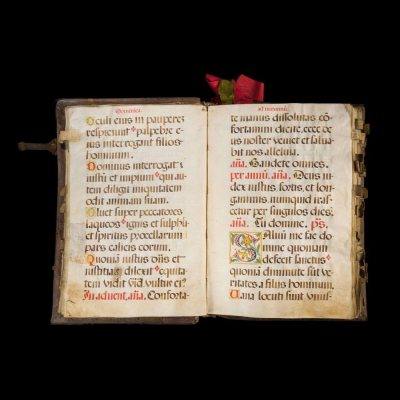 Dominica.
Oculi eius in pauperez
respiciunt palpebre e-
ius interrogant filios
hominum.
Dominus interrogat i
ustū et impium qui au-
tem diligit iniquitatem
odit animam suam.
Pluet super peccatores
laqueos ignis et sulphu
et spiritus procellarum
pars calicis eorum.
Quoniā iustus dn̄s et
iustitiaz dilexit equita-
tem vidit vult' ei'
In aduent. aīīa. Conforta-
ad nonam.
te manus dissolutas cō-
fortamini dicite. ecce de
us noster veniet et salua-
bit nos alleluia.
aīīa. Gaudete omnes.
per annū. aīīa. Deus iu-
dex iustus fortis et lon-
ganimis nunquid iras-
cetur per singulos dies.
aīīa. Tu domine. ps̄.
Saluū me fac do-
mine quoniam
defecit sanctus
quoniā diminute sūt ve-
ritates a filiis hominum.
Vana locuti sunt vnus-